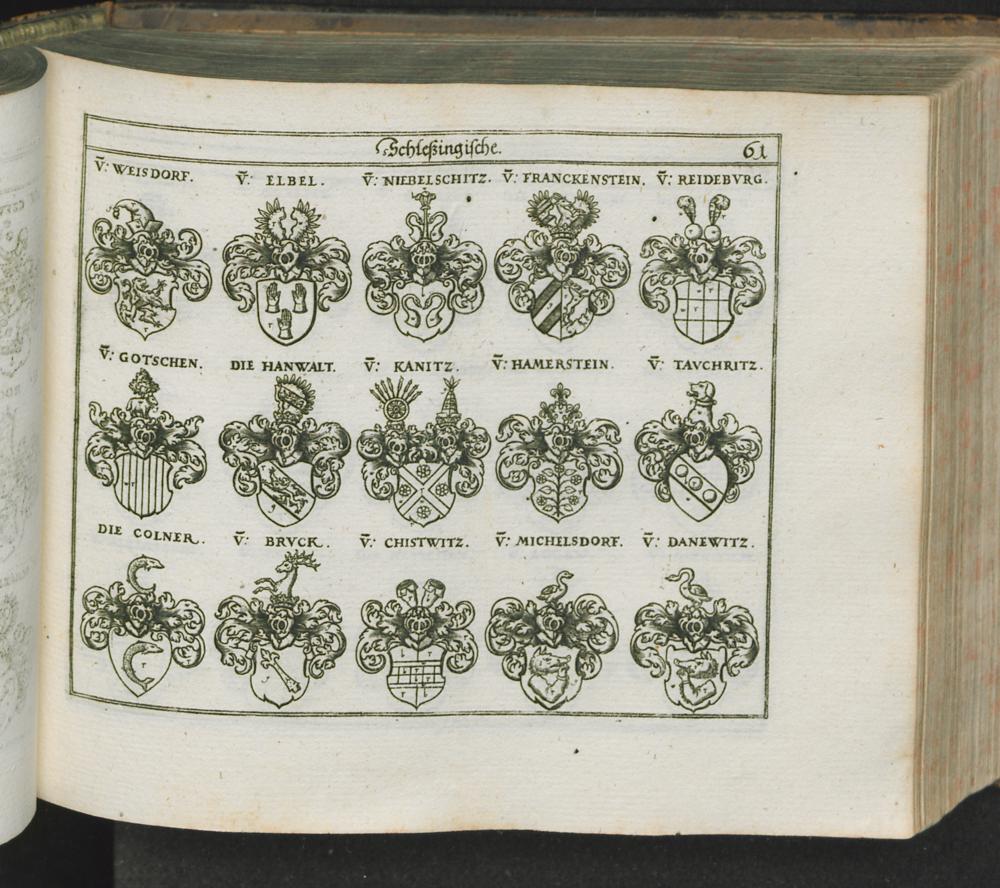 Schleßingische. 61
V̄: WEISDORF. V̄: ELBEL. V̄: NIEBELSCHITZ. V̄: FRANCKENSTEIN. V̄: REIDEBVRG.
V̄: GOTSCHEN. DIE HANWALT. V̄: KANITZ. V̄: HAMERSTEIN. V̄: TAVCHRITZ.
DIE COLNER. V̄: BRVCK. V̄: CHISTWITZ. V̄: MICHELSDORF. V̄: DANEWITZ.